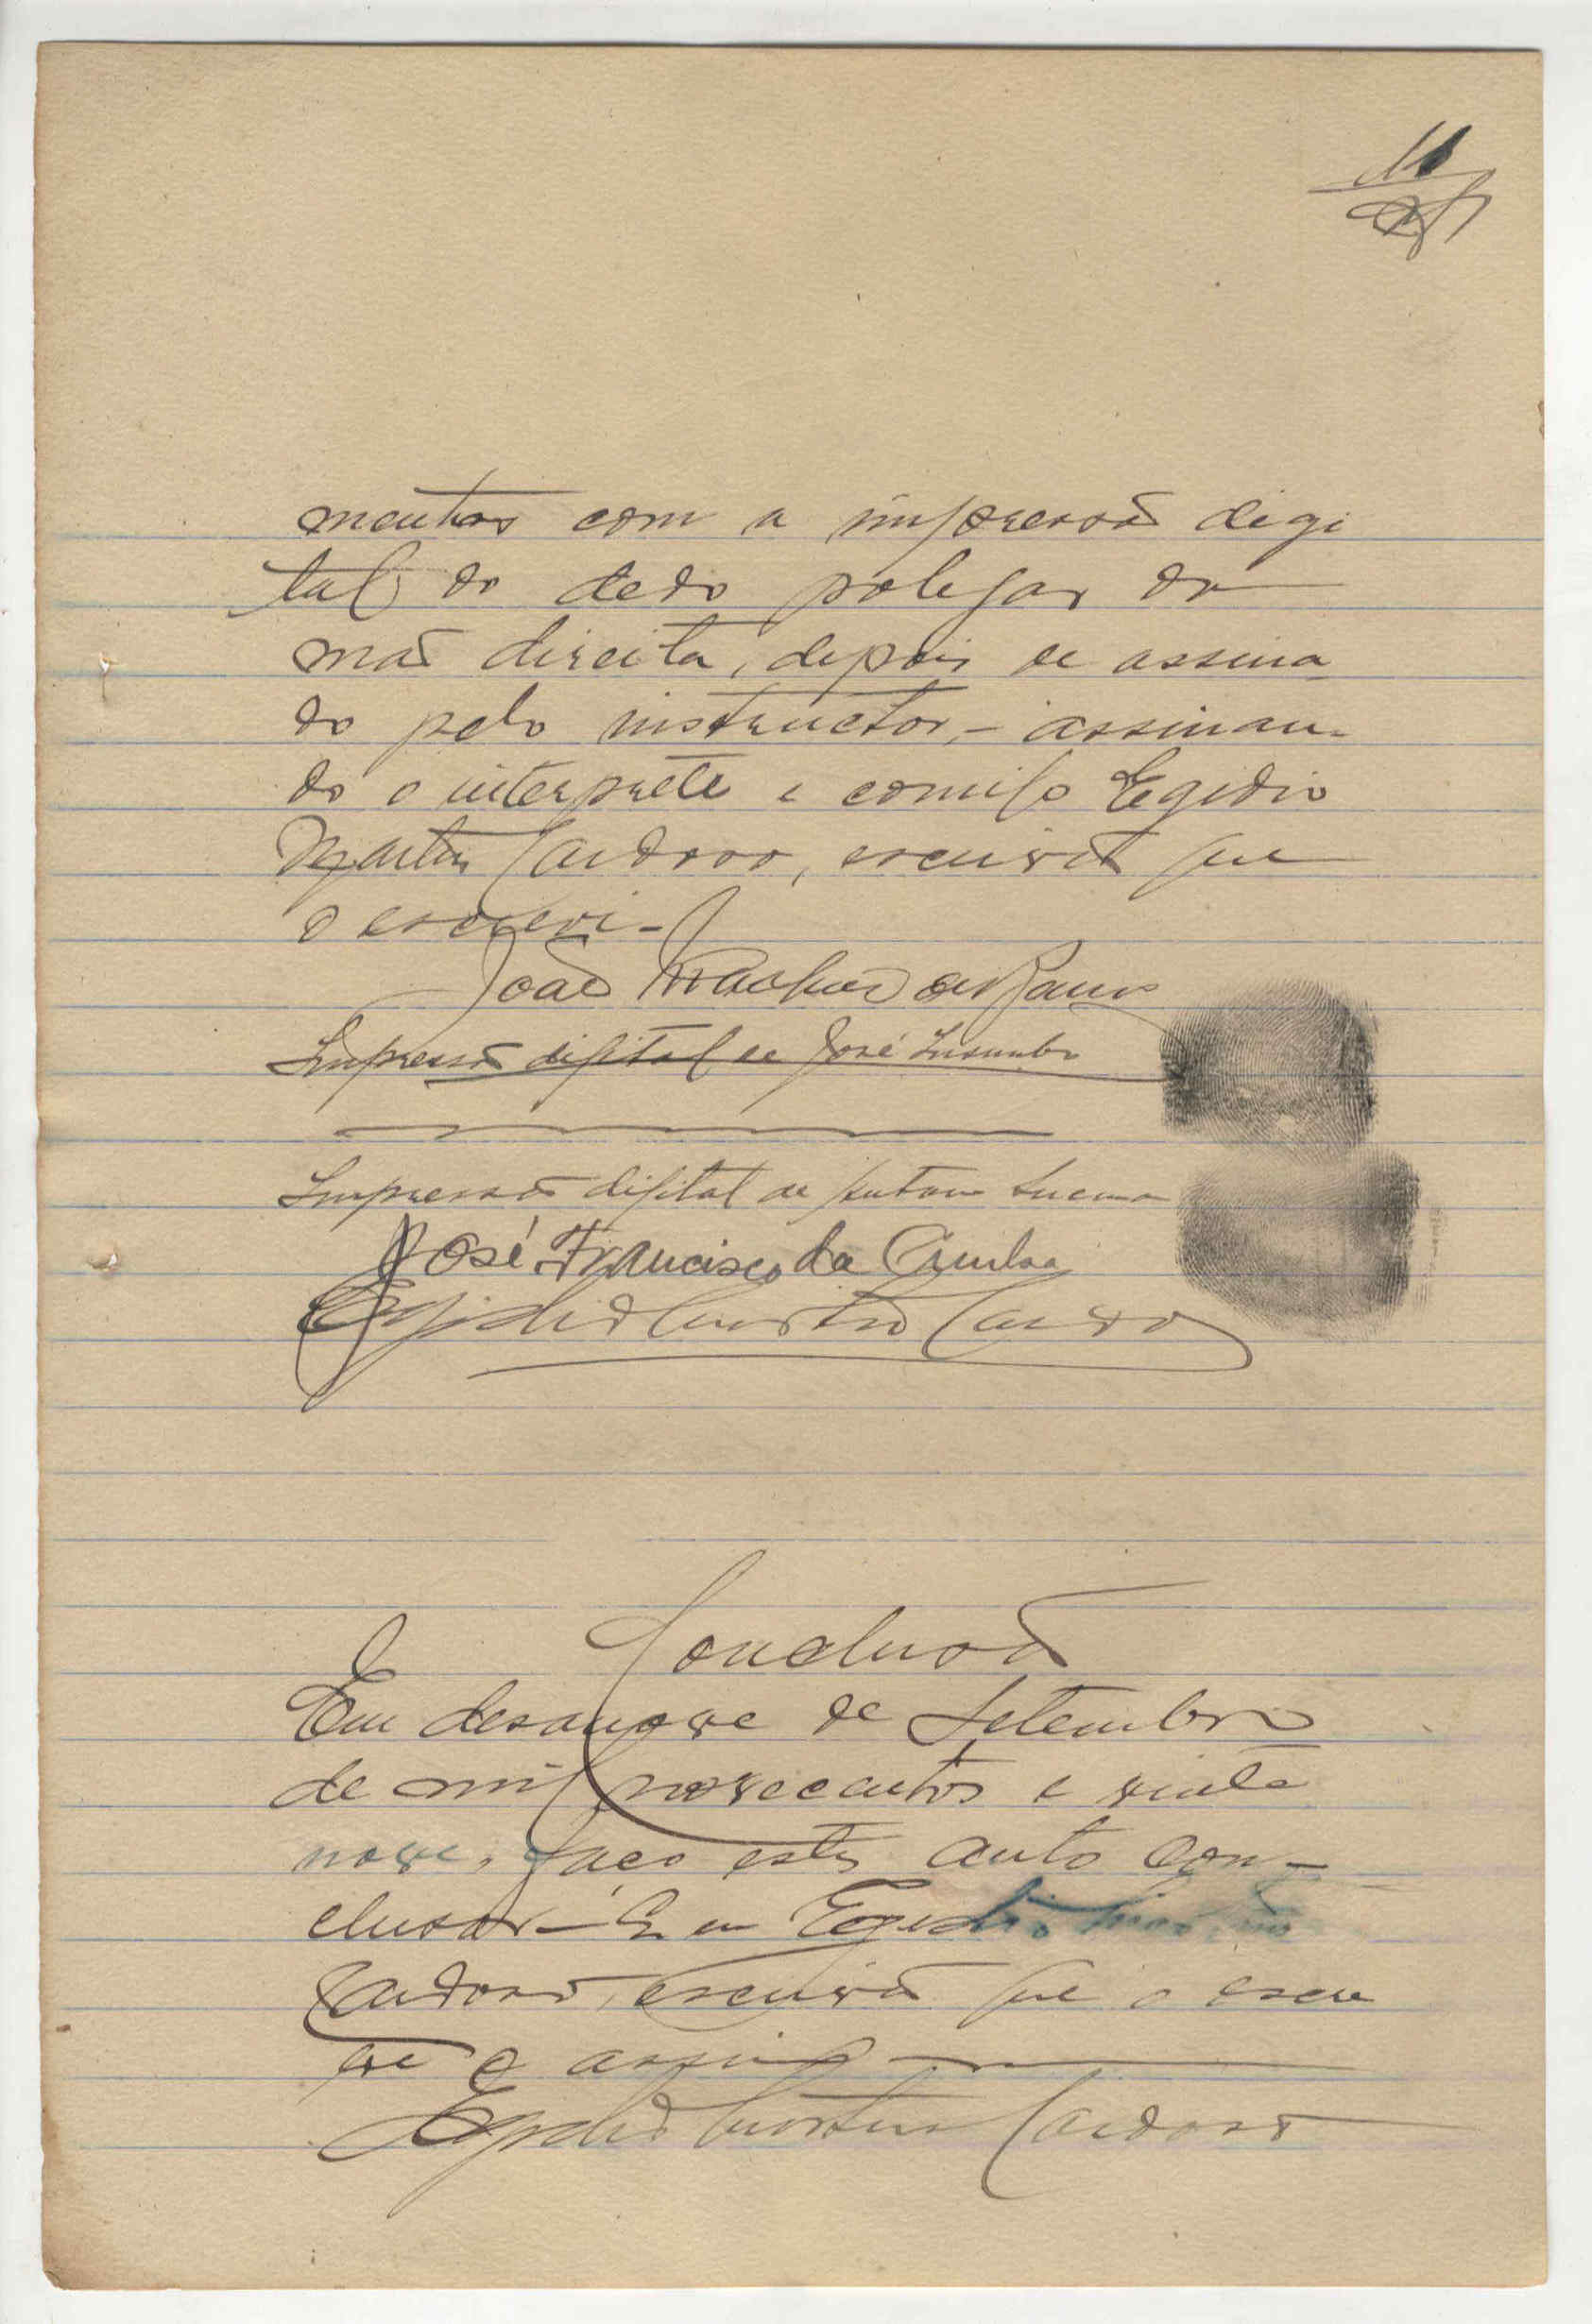 11
mentos com a impressão digi
tal do dedo polegar da
mão direita, depois de assina
do pelo instructor, - assinan-
do o interprete e comigo Egidio
Martins Cardoso, escrivão que
o escrevi -
João de Barros
Impressão digital de José
Impressão digital de
José Francisco da Cunha
Egidio Martins Cardoso
Conclusão
Em desanove de Setembro
de mil novecentos e vinte
nove, faço estes auto con-
clusos - E eu Egidio Martins
Cardoso, escrivão que o escre
ve e assino
Egidio Martins Cardoso